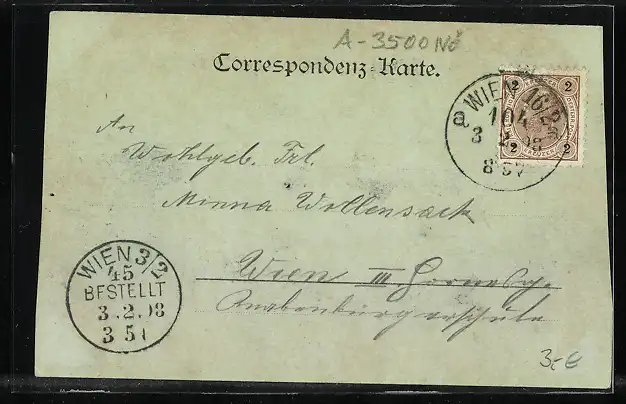 A-3500 NÖ
Correspondenz-Karte.
2 2
2 2
WIEN 16/2
a
104
3 2 98
8 5V
An
Wohlgeb. Frl.
Minna Wollensack
Wien III
WIEN 3/2
45
BESTELLT
3.2.98
3 5
3.- €